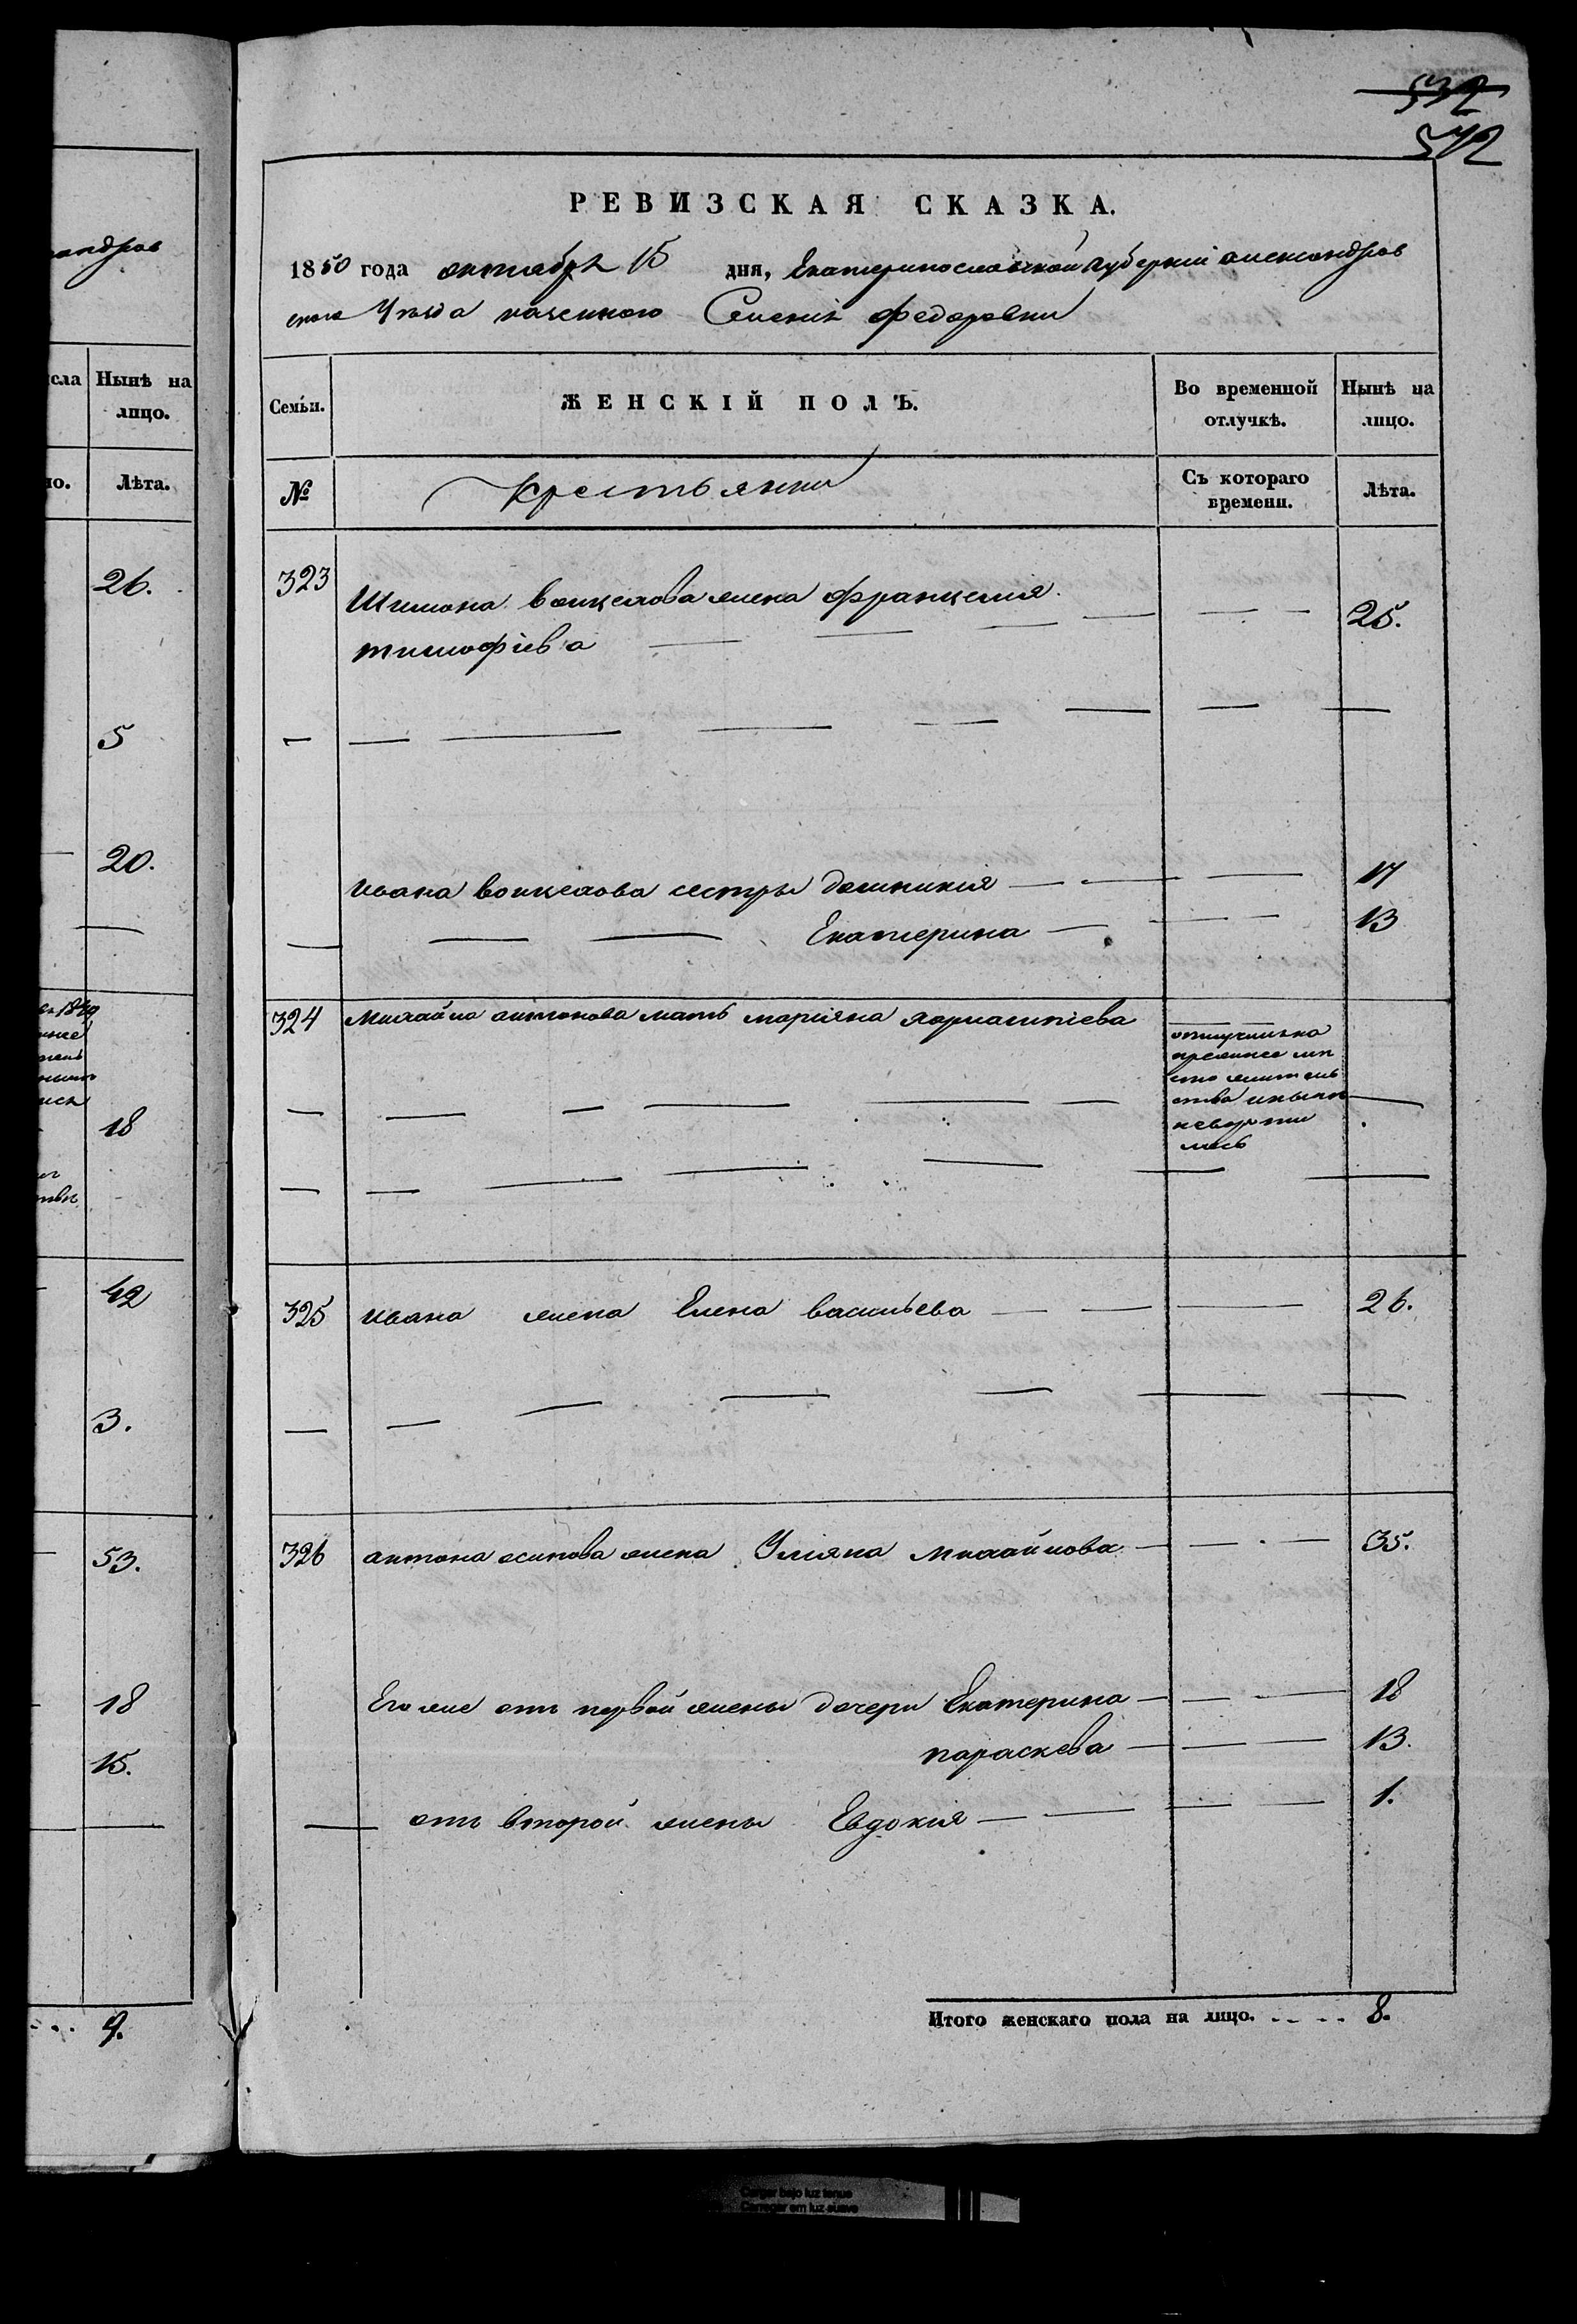 андров
сла
Нынѣ на
лицо.
но.
Лѣта.
26.
5
20.
18
42
3.
53.
18
15.
9.
532
572
РЕВИЗСКАЯ СКАЗКА.
1850 года октября 15 дня, Екатеринославской губерніи александров
скаго Уѣзда казенного Селенія федоровки
Семьи.
ЖЕНСКІЙ ПОЛЪ.
Во временной отлучкѣ.
Нынѣ на лицо.
№
крестьянки
Съ котораго времени.
Лѣта.
323 Шимона войцехова жена францишка
тимофіева 25.
ивана войцехова сестры доминикія 17
Екатерина 13
324 Михайла антонова мать маріяна
отлучилась на
прежнее мѣ
сто житель
ства и нынѣ
невороти
лась
325 ивана жена Елена васильева 26.
326 антона осипова жена Уліяна михайлова 35.
Его же отъ первой жены дочери Екатерина 18
параскева 13.
отъ второй жены Евдокія 1.
Итого женскаго пола на лицо. 8.